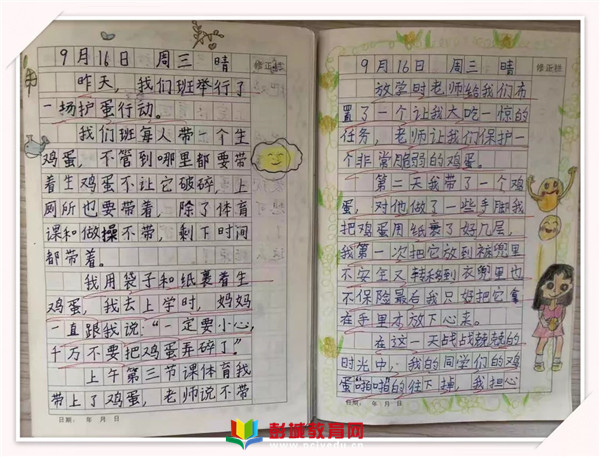 9月16日 周三 晴
昨天，我们班举行了
一场护蛋行动。
我们班每人带一个生
鸡蛋，不管到哪里都要带
着生鸡蛋不让它破碎，上
厕所也要带着，除了体育
课和做操不带，剩下时间
都带着。
我用袋子和纸裹着生
鸡蛋，我去上学时，妈妈
一直跟我说：“一定要小心，
千万不要把鸡蛋弄碎了”
上午第三节课体育我
带上了鸡蛋，老师说不带
日期： 年 月 日
9月16日 周三 晴 修正栏
放学时老师给我们布
置了一个让我大吃一惊的
任务，老师让我们保护一
个非常脆弱的鸡蛋。
第二天我带了一个鸡
蛋，对他做了一些手脚我
把鸡蛋用纸裹了好几层，
我第一次把它放到裤兜里
不安全又转移到衣兜里也
不保险最后我只好把它拿
在手里才放下心来。
在这一天战战兢兢的
时光中，我的同学们的鸡
蛋“啪啪”的往下掉，我担心
年 月 日
彭城教育网